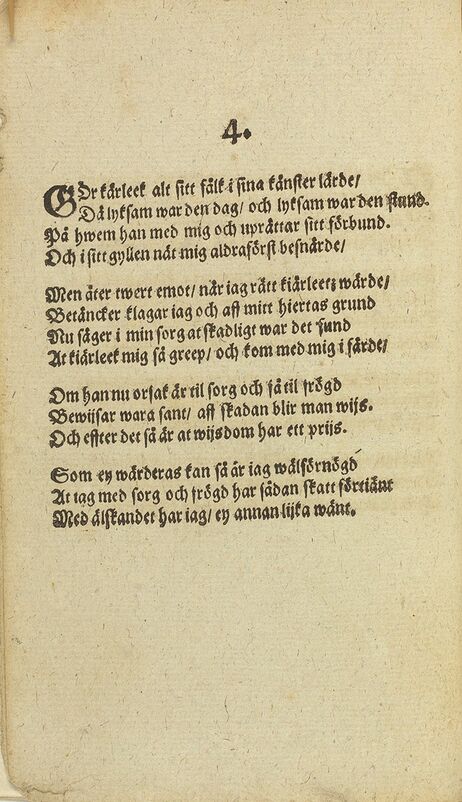 4.
GÖr kärleek alt sitt fålk i sina känster lärde/
Då lyksam war den dag/ och lyksam war den stund.
På hwem han med mig och uprättar sitt förbund.
Och i sitt gyllen nät mig aldraförst besnärde/
Men åter twert emot/ när iag rätt kiärleetz wärde/
Betäncker klagar iag och aff mitt hiertas grund
Nu säger i min sorg at skadligt war det fund
At kiärleek mig så greep/ och kom med mig i färde/
Om han nu orsak är til sorg och så til frögd
Bewijsar wara sant/ aff skadan blir man wijs.
Och effter det så är at wijsdom har ett prijs.
Som ey wärderas kan så är iag wälförnögd
At iag med sorg och frögd har sådan skatt förtiänt
Med älskandet har iag/ ey annan lijka wänt.